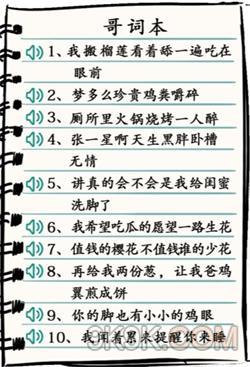 哥词本
1、我搬榴莲看着舔一遍吃在
眼前
2、梦多么珍贵鸡粪嚼碎
3、厕所里火锅烧烤一人醉
4、张一星啊天生黑胖卧槽
无情
5、讲真的会不会是我给闺蜜
洗脚了
6、我希望吃瓜的愿望一路生花
7、值钱的樱花不值钱谁的少花
8、再给我两份葱，让我爸鸡
翼煎成饼
9、你的脚也有小小的鸡眼
10、我用着累来提醒你来睡